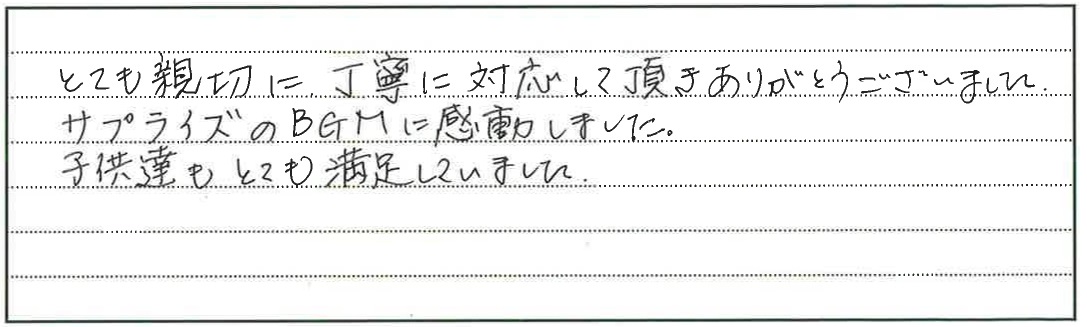 とても親切に、丁寧に対応して頂きありがとうございました.
サプライズのBGMに感動しました。
子供達もとても満足していました.